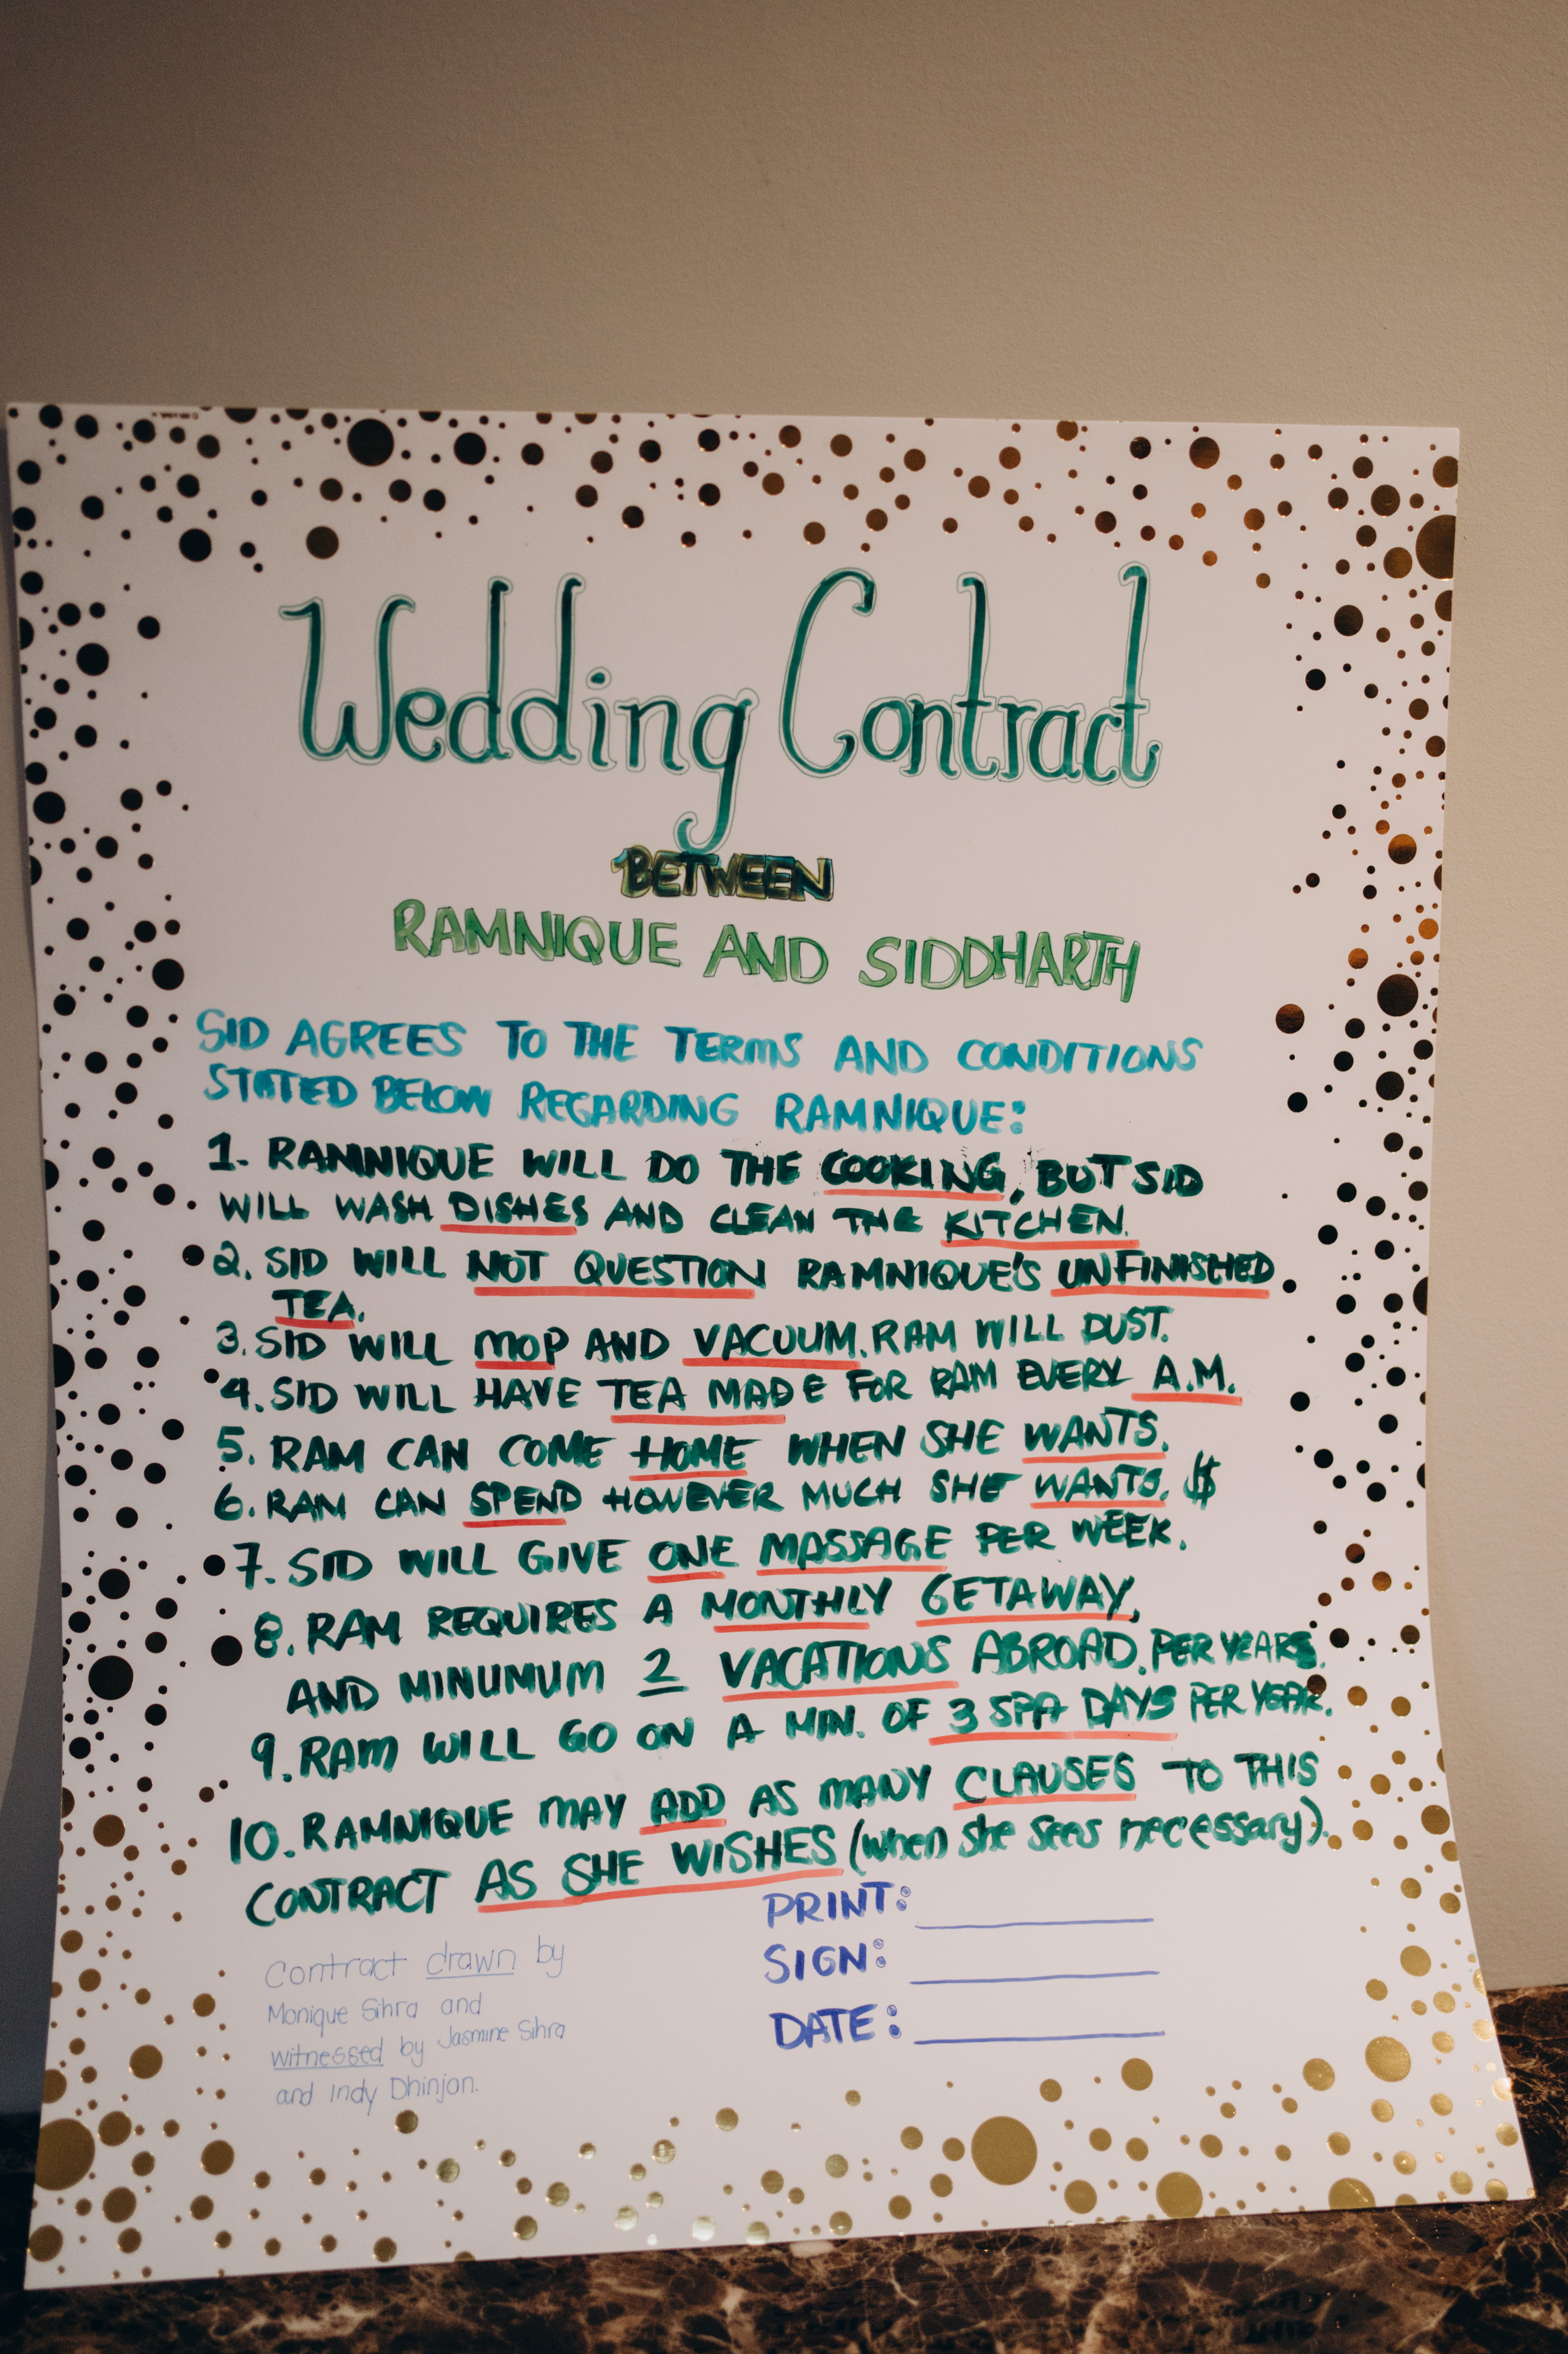 Wedding Contract
BETWEEN
RAMNIQUE AND SIDDHARTH
SID AGREES TO THE TERMS AND CONDITIONS
STATED BELOW REGARDING RAMNIQUE:
1. RAMNIQUE WILL DO THE COOKING, BUT SID
WILL WASH DISHES AND CLEAN THE KITCHEN.
2. SID WILL NOT QUESTION RAMNIQUE'S UNFINISHED
TEA.
3. SID WILL MOP AND VACUUM. RAM WILL DUST.
4. SID WILL HAVE TEA MADE FOR RAM EVERY A.M.
5. RAM CAN COME HOME WHEN SHE WANTS.
6. RAM CAN SPEND HOWEVER MUCH SHE WANTS. $
7. SID WILL GIVE ONE MASSAGE PER WEEK.
8. RAM REQUIRES A MONTHLY GETAWAY,
AND MINUMUM 2 VACATIONS ABROAD. PER YEARS.
9. RAM WILL GO ON A MIN. OF 3 SPA DAYS PER YEAR.
10. RAMNIQUE MAY ADD AS MANY CLAUSES TO THIS
CONTRACT AS SHE WISHES (when she sees necessary).
PRINT:
SIGN:
DATE:
Contract drawn by
Monique Sihra and
witnessed by Jasmine Sihra
and Indy Dhinjan.